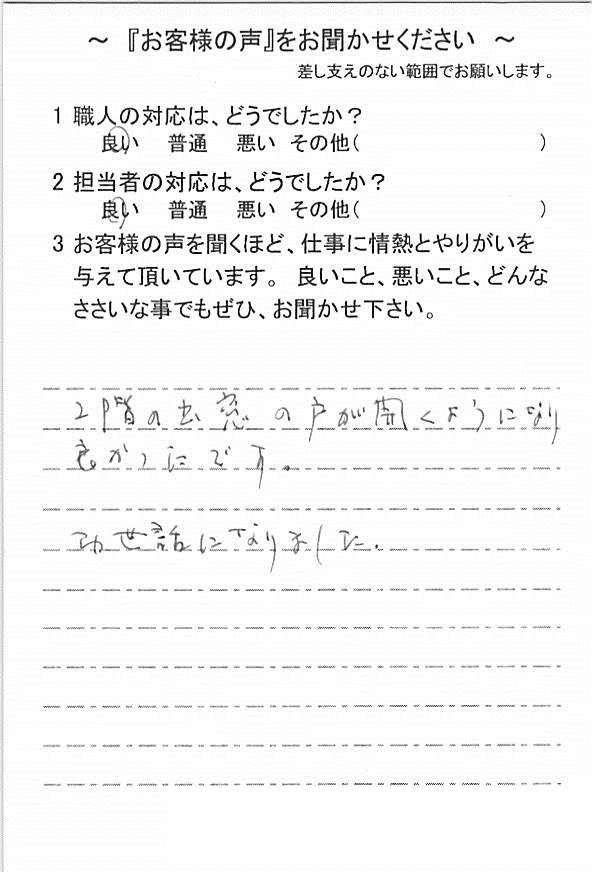 ～ 『お客様の声』をお聞かせください ～
差し支えのない範囲でお願いします。
1 職人の対応は、どうでしたか？
良い 普通 悪い その他( )
2 担当者の対応は、どうでしたか？
良い 普通 悪い その他( )
3 お客様の声を聞くほど、仕事に情熱とやりがいを
与えて頂いています。 良いこと、悪いこと、どんな
ささいな事でもぜひ、お聞かせ下さい。
2階の出窓の戸が開くようになり
良かったです。
お世話になりました.